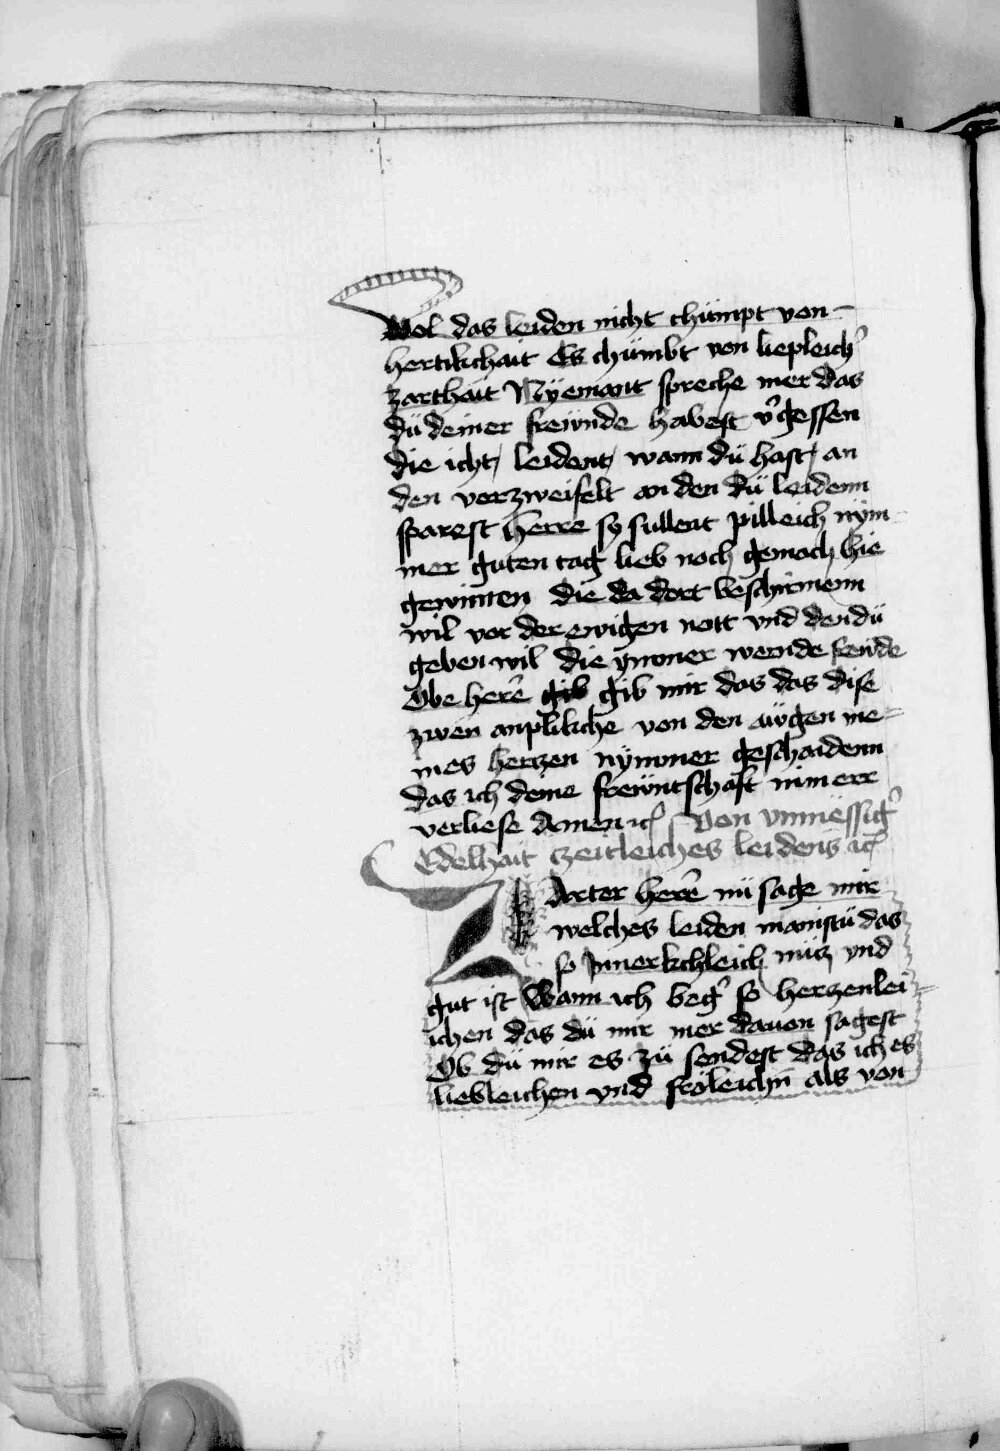 Wol das leiden nicht chümpt von
hertikchait Es chümbt von liepleich᾽
zarthait Nÿemant spreche mer das
dü deiner freẅnde habest v᾽gessen
die icht leident wann dü hast an
den verzweifelt an den dü leidenn
sparest Herre so sullent pilleich nÿm
mer guten tag lieb noch gemach hie
gewinnen die da dort beschirmenn
wil vor der ewigen nott vnd den dü
geben wil die ymmer wernde frewde
Obe herre gib gib mir das das dise
zwen anplikche von den awgen me=
nes hertzen nÿmmer geschaidenn
das ich deine freẅntschaft nimerr
verliese Amen ꝛc Von vnmëssig᾽
Edelhait czeitleiches leidens ꝛc
Zarter herre nü sage mir
welches leiden mainstü das
so Innerkchleich nücz vnd
gut ist Wann ich beg᾽ so herzenlei=
ichen das dü mir mer dauon sagest
Ob dü mir es zü sendest das ich es
liebleichen vnd fröleichn̄ als von